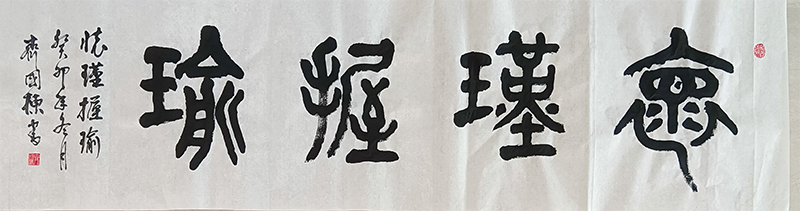 懷瑾握瑜
懷瑾握瑜
癸卯年冬月
齊國棟書